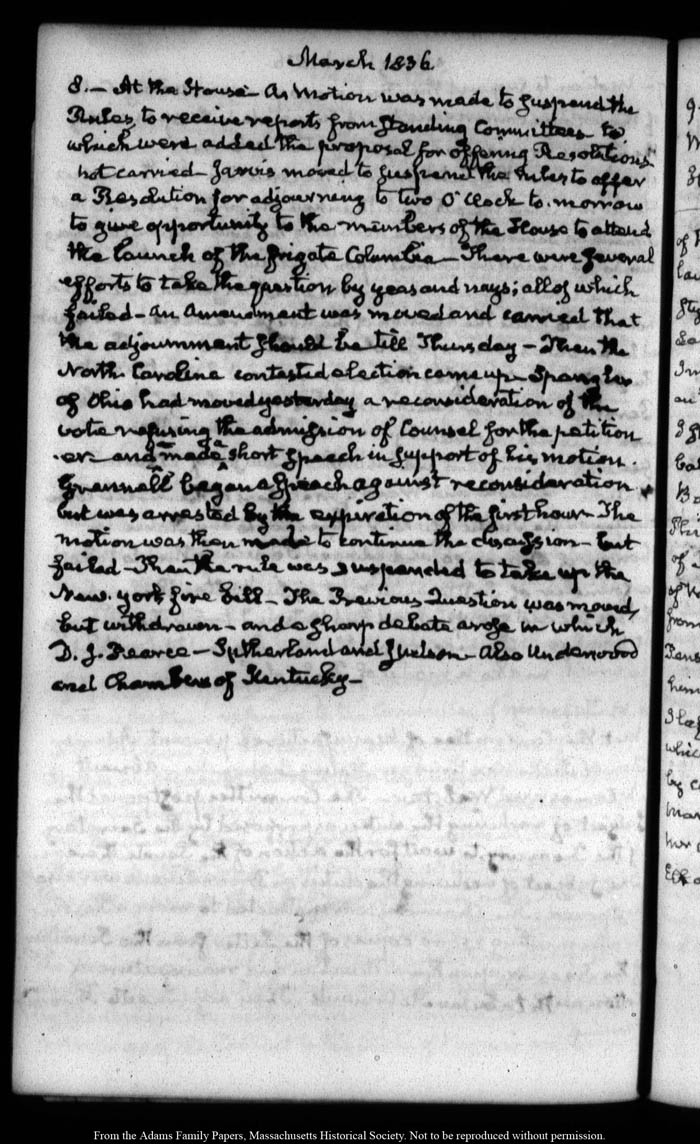 March 1836.
8.— At the House— A Motion was made to suspend the
Rules, to receive reports from standing Committees to
which were added the proposal for offering Resolutions
not carried— Jarvis moved to suspend the rules to offer
a Resolution for adjourning to two O'Clock to-morrow
to give opportunity to the members of the House to attend
the launch of the frigate Columbia— There were several
efforts to take the question by yeas and nays; all of which
failed— An amendment was moved and carried that
the adjournment should be till Thursday— Then the
North Carolina contested election came up— Spangler
of Ohio had moved yesterday a reconsideration of the
vote refusing the admission of Counsel for the petition
er— and made a short speech in support of his motion.
Grennell began a speach against reconsideration
but was arrested by the expiration of the first hour— The
motion was then made to continue the discussion— but
failed— Then the rule was suspended to take up the
New-york fire bill— The Previous Question was moved,
but withdrawn— and a sharp debate arose in which
D. J. Pearce— Sutherland and Judson— Also Underwood
and Chambers of Kentucky—
of
from
him
which
by
Mr
From the Adams Family Papers, Massachusetts Historical Society. Not to be reproduced without permission.